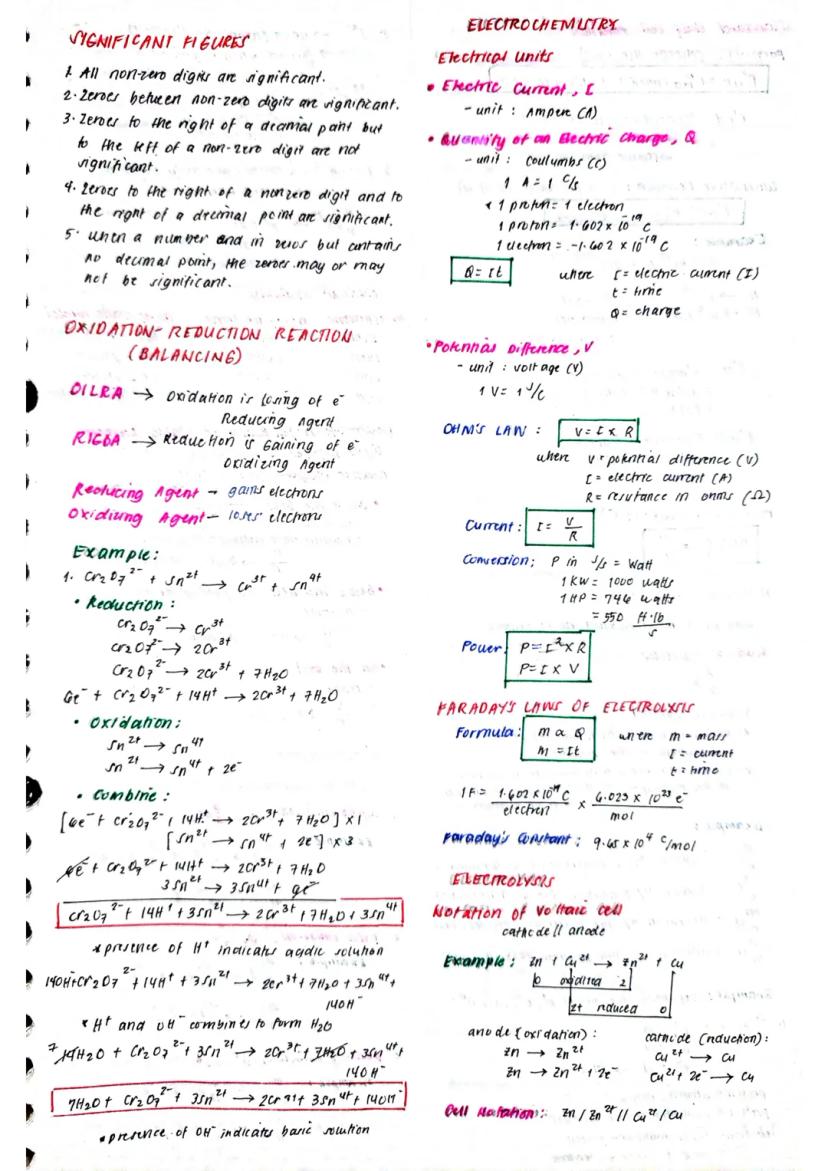 SIGNIFICANT FIGURES
1. All non-zero digits are significant.
2. Zeroes between non-zero digits are significant.
3. Zeroes to the right of a decimal point but
to the left of a non-zero digit are not
significant.
4. Zeroes to the right of a nonzero digit and to
the right of a decimal point are significant.
5. When a number end in zeros but contains
no decimal point, the zeroes may or may
not be significant.
OXIDATION-REDUCTION REACTION
(BALANCING)
OILRA → Oxidation is losing of e⁻
Reducing Agent
RIGOA → Reduction is Gaining of e⁻
Oxidizing Agent
Reducing Agent - gains electrons
Oxidizing Agent - loses electrons
Example:
1. Cr₂O₇²⁻ + Sn²⁺ → Cr³⁺ + Sn⁴⁺
• Reduction:
Cr₂O₇²⁻ → Cr³⁺
Cr₂O₇²⁻ → 2Cr³⁺
Cr₂O₇²⁻ → 2Cr³⁺ + 7H₂O
6e⁻ + Cr₂O₇²⁻ + 14H⁺ → 2Cr³⁺ + 7H₂O
• Oxidation:
Sn²⁺ → Sn⁴⁺
Sn²⁺ → Sn⁴⁺ + 2e⁻
• Combine:
[6e⁻ + Cr₂O₇²⁻ + 14H⁺ → 2Cr³⁺ + 7H₂O] x1
[Sn²⁺ → Sn⁴⁺ + 2e⁻] x3
6e⁻ + Cr₂O₇²⁻ + 14H⁺ → 2Cr³⁺ + 7H₂O
3Sn²⁺ → 3Sn⁴⁺ + 6e⁻
Cr₂O₇²⁻ + 14H⁺ + 3Sn²⁺ → 2Cr³⁺ + 7H₂O + 3Sn⁴⁺
* presence of H⁺ indicates acidic solution
14OH⁻ + Cr₂O₇²⁻ + 14H⁺ + 3Sn²⁺ → 2Cr³⁺ + 7H₂O + 3Sn⁴⁺ +
14OH⁻
* H⁺ and OH⁻ combines to form H₂O
7 14H₂O + Cr₂O₇²⁻ + 3Sn²⁺ → 2Cr³⁺ + 7H₂O + 3Sn⁴⁺ +
14OH⁻
7H₂O + Cr₂O₇²⁻ + 3Sn²⁺ → 2Cr³⁺ + 3Sn⁴⁺ + 14OH⁻
* presence of OH⁻ indicates basic solution
ELECTROCHEMISTRY
Electrical Units
• Electric Current, I
- unit : Ampere (A)
• Quantity of an Electric Charge, Q
- unit : Coulumbs (C)
1 A = 1 C/s
* 1 proton = 1 electron
1 proton = 1.602 x 10⁻¹⁹ C
1 electron = -1.602 x 10⁻¹⁹ C
Q = It where I = electric current (I)
t = time
Q = charge
• Potential Difference, V
- unit : voltage (V)
1 V = 1 J/C
OHM'S LAW : V = I x R
where V = potential difference (V)
I = electric current (A)
R = resistance in ohms (Ω)
Current : I = V/R
Conversion; P in J/s = Watt
1 KW = 1000 watts
1 HP = 746 watts
= 550 ft·lb/s
Power: P = I² x R
P = I x V
FARADAY'S LAWS OF ELECTROLYSIS
Formula: m α Q where m = mass
m = It I = current
t = time
1 F = 1.602 x 10⁻¹⁹ C/electron x 6.023 x 10²³ e⁻/mol
Faraday's Constant : 9.65 x 10⁴ C/mol
ELECTROLYSIS
Notation of Voltaic Cell
cathode // anode
Example : Zn + Cu²⁺ → Zn²⁺ + Cu
0 oxidized 2
2+ reduced 0
anode (oxidation) : cathode (reduction) :
Zn → Zn²⁺ Cu²⁺ → Cu
Zn → Zn²⁺ + 2e⁻ Cu²⁺ + 2e⁻ → Cu
Cell Notation : Zn / Zn²⁺ // Cu²⁺ / Cu